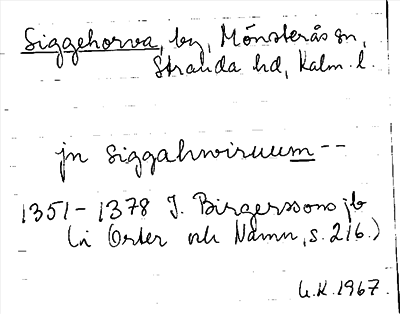 Siggehorva, by, Mönsterås sn,
Stranda hd, Kalm. l.
jn Siggahwiruum --
1351-1378 J. Birgerssons jb
(i Orter och Namn, s. 216.)
G.K. 1967.